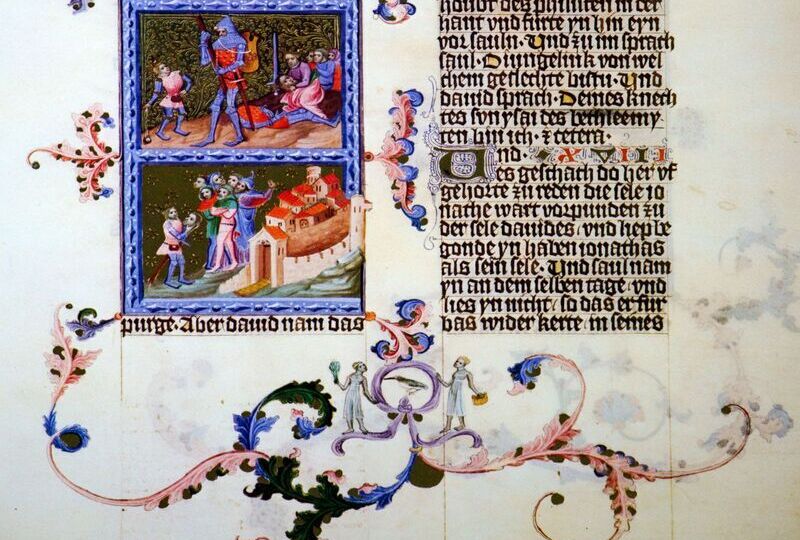 purge · Aber dauid nam das
houbt des philisten in der
hant vnd furte yn hin eyn
vor sauln · Und zu im sprach
saul · O iungelink von wel
chem geslechte bistu · Und
dauid sprach · Deines knech
tes syn ysai des bethleemy
ten bin ich · ⁊ cetera ·
Und · XVIII
es geschach do her vs
gehorte zu reden die sele io
nathe wart vorpunden zu
der sele dauides / vnd hep be
gonde yn haben ionathas
als sein sele · Und saul nam
yn an dem selben tage / vnd
lies yn nicht / so das er fur
bas wider kerte / in seines